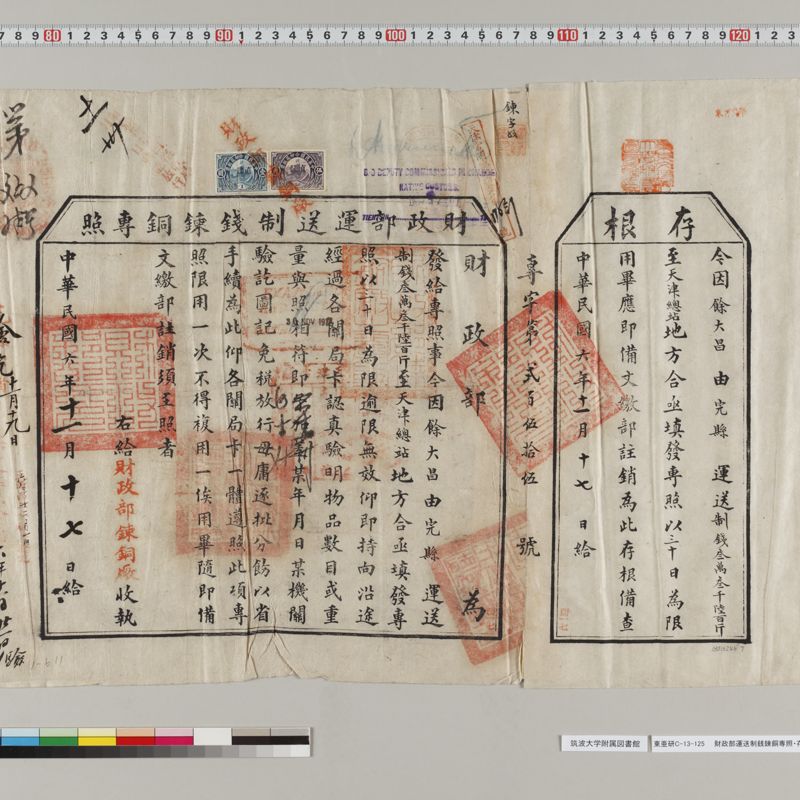 存根
今因餘大昌由完縣運送制錢叁萬叁千陸百斤
至天津總站地方合亟填發專照以三十日為限
用畢應即備文繳部註銷為此存根備查
中華民國六年十一月十七日給
專字第弍千伍拾伍號
財政部運送制錢鍊銅專照
財政部為
發給專照事今因餘大昌由完縣運送
制錢叁萬叁千陸百斤至天津總站地方合亟填發專
照以三十日為限逾限無效仰即持向沿途
經過各關局卡認真驗明物品數目或重
量與照相符即
某年月日某機關
驗訖圖記免税放行毋庸逐批分飭以省
手續為此仰各關局卡一體遵照此項專
照限用一次不得複用一俟用畢隨即備
文繳部註銷須至照者
右給財政部鍊銅廠收執
中華民國六年十一月十七日給
鍊字
NATIVE CUSTOMS
TIENTSIN
筑波大学附属図書館
東亜研C-13-125 財政部運送制銭錬銅専照・存
7 8 9 80 1 2 3 4 5 6 7 8 9 90 1 2 3 4 5 6 7 8 9 100 1 2 3 4 5 6 7 8 9 110 1 2 3 4 5 6 7 8 9 120 1 2 3